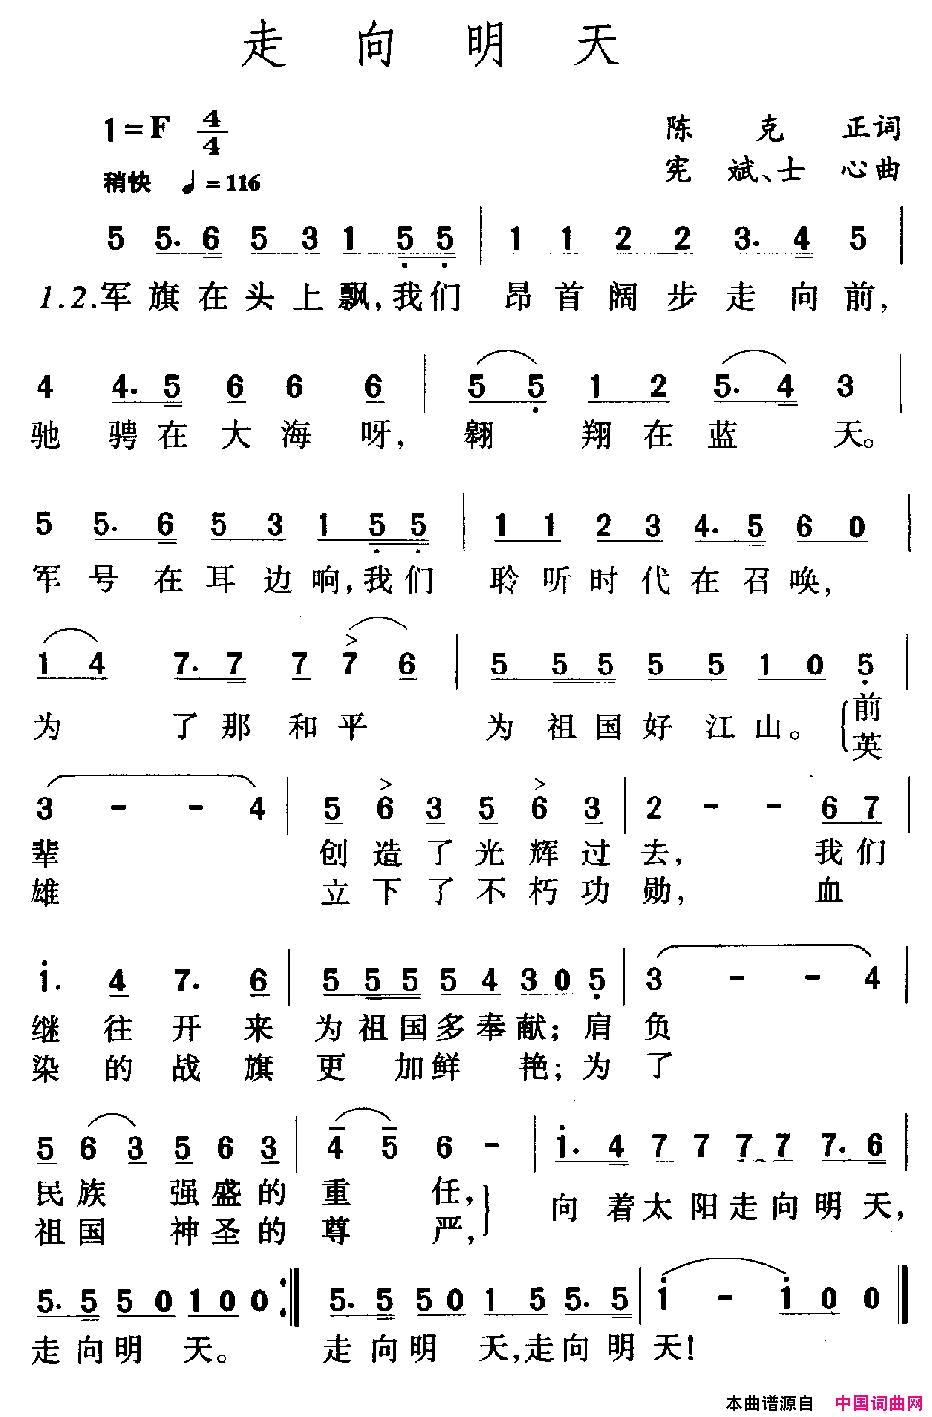 走向明天
1=F 4/4
陈克正词
稍快 ♩=116
宪斌、士心曲
5 5. 6 5 3 1 5 5 | 1 1 1 2 2 3. 4 5 |
1.2.军旗在头上飘,我们 昂首阔步走向前,
4 4. 5 6 6 6 | 5 5 1 2 5. 4 3 |
驰骋在大海呀, 翱翔在蓝天。
5 5. 6 5 3 1 5 5 | 1 1 2 3 4. 5 6 0 |
军号在耳边响,我们 聆听时代在召唤,
1 4 7. 7 7 7 6 | 5 5 5 5 5 1 0 5 |
为了那和平 为祖国好江山。 前
英
3 - - 4 | 5 6 3 5 6 3 | 2 - - 6 7 |
辈 创造了光辉过去, 我们
雄 立下了不朽功勋, 血
i. 4 7. 6 | 5 5 5 5 4 3 0 5 | 3 - - 4 |
继往开来 为祖国多奉献;肩负
染的战旗 更加鲜艳;为了
5 6 3 5 6 3 | 4 5 6 - | i. 4 7 7 7 7 7. 6 |
民族强盛的重任, 向着太阳走向明天,
祖国神圣的尊严,
5. 5 5 0 1 0 0 0 :|| 5. 5 5 0 1 5 5. 5 | i - i 0 0 ||
走向明天。 走向明天,走向明天!
本曲谱源自 中国词曲网